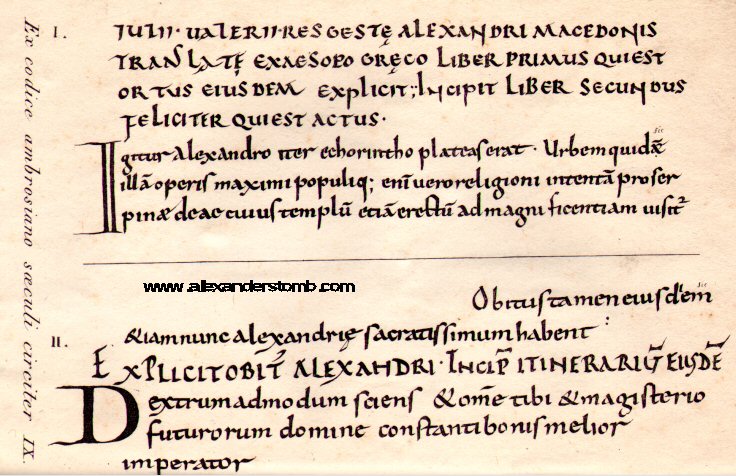 Ex codice ambrosiano sæculi circiter IX.
I.
IULII · VALERII · RES GESTĘ ALEXANDRI MACEDONIS
TRANSLATĘ EXAESOPO GRĘCO LIBER PRIMUS QUIEST
ORTUS EIUSDEM EXPLICIT; INCIPIT LIBER SECUNDUS
FELICITER QUIEST ACTUS ·
sic
Igitur alexandro iter echorintho plateaserat · Urbem quidẽ
illã operis maximi populiq; enĩ vero religioni intentã proser
pinæ deae cuius templũ etiã erectũ ad magnificentiam visit᷑
www.alexanderstomb.com
sic
Obitus tamen eius diem
II.
& iam nunc alexandrię sacratissimum habent :
EXPLICIT OBIT̃ ALEXANDRI · INCIP̃ ITINERARIŨ EIUSDẼ
Dextrum admodum sciens & om̃e tibi & magisterio
futurorum domine constanti bonis melior
imperator